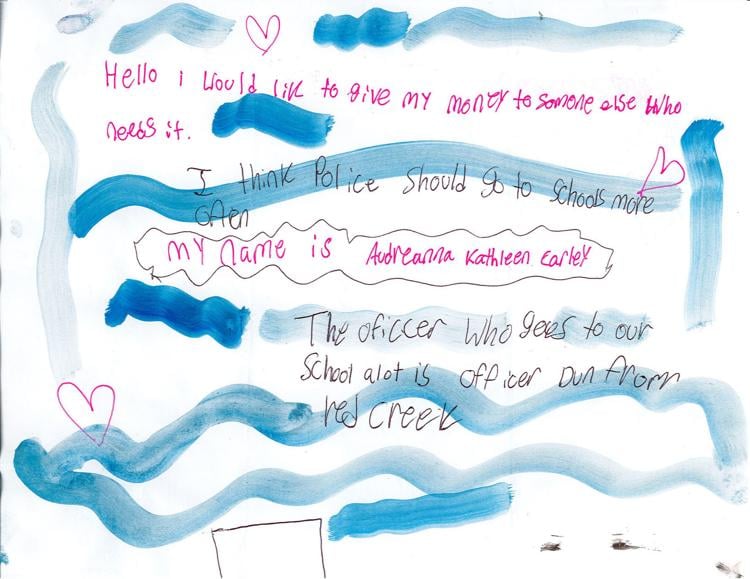 Hello i would lik to give my money to somone else who
needs it.
I think Police should go to schools more
often
my name is Audreanna Kathleen Earley
The oficcer who goes to our
school alot is officer Dun from
red creek